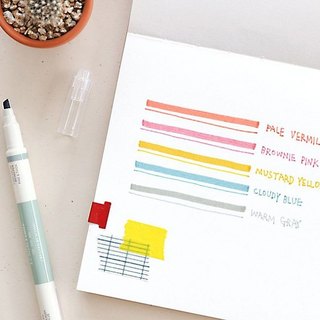 PALE VERMIL
BROWNIE PINK
MUSTARD YELLO
CLOUDY BLUE
WARM GRAY